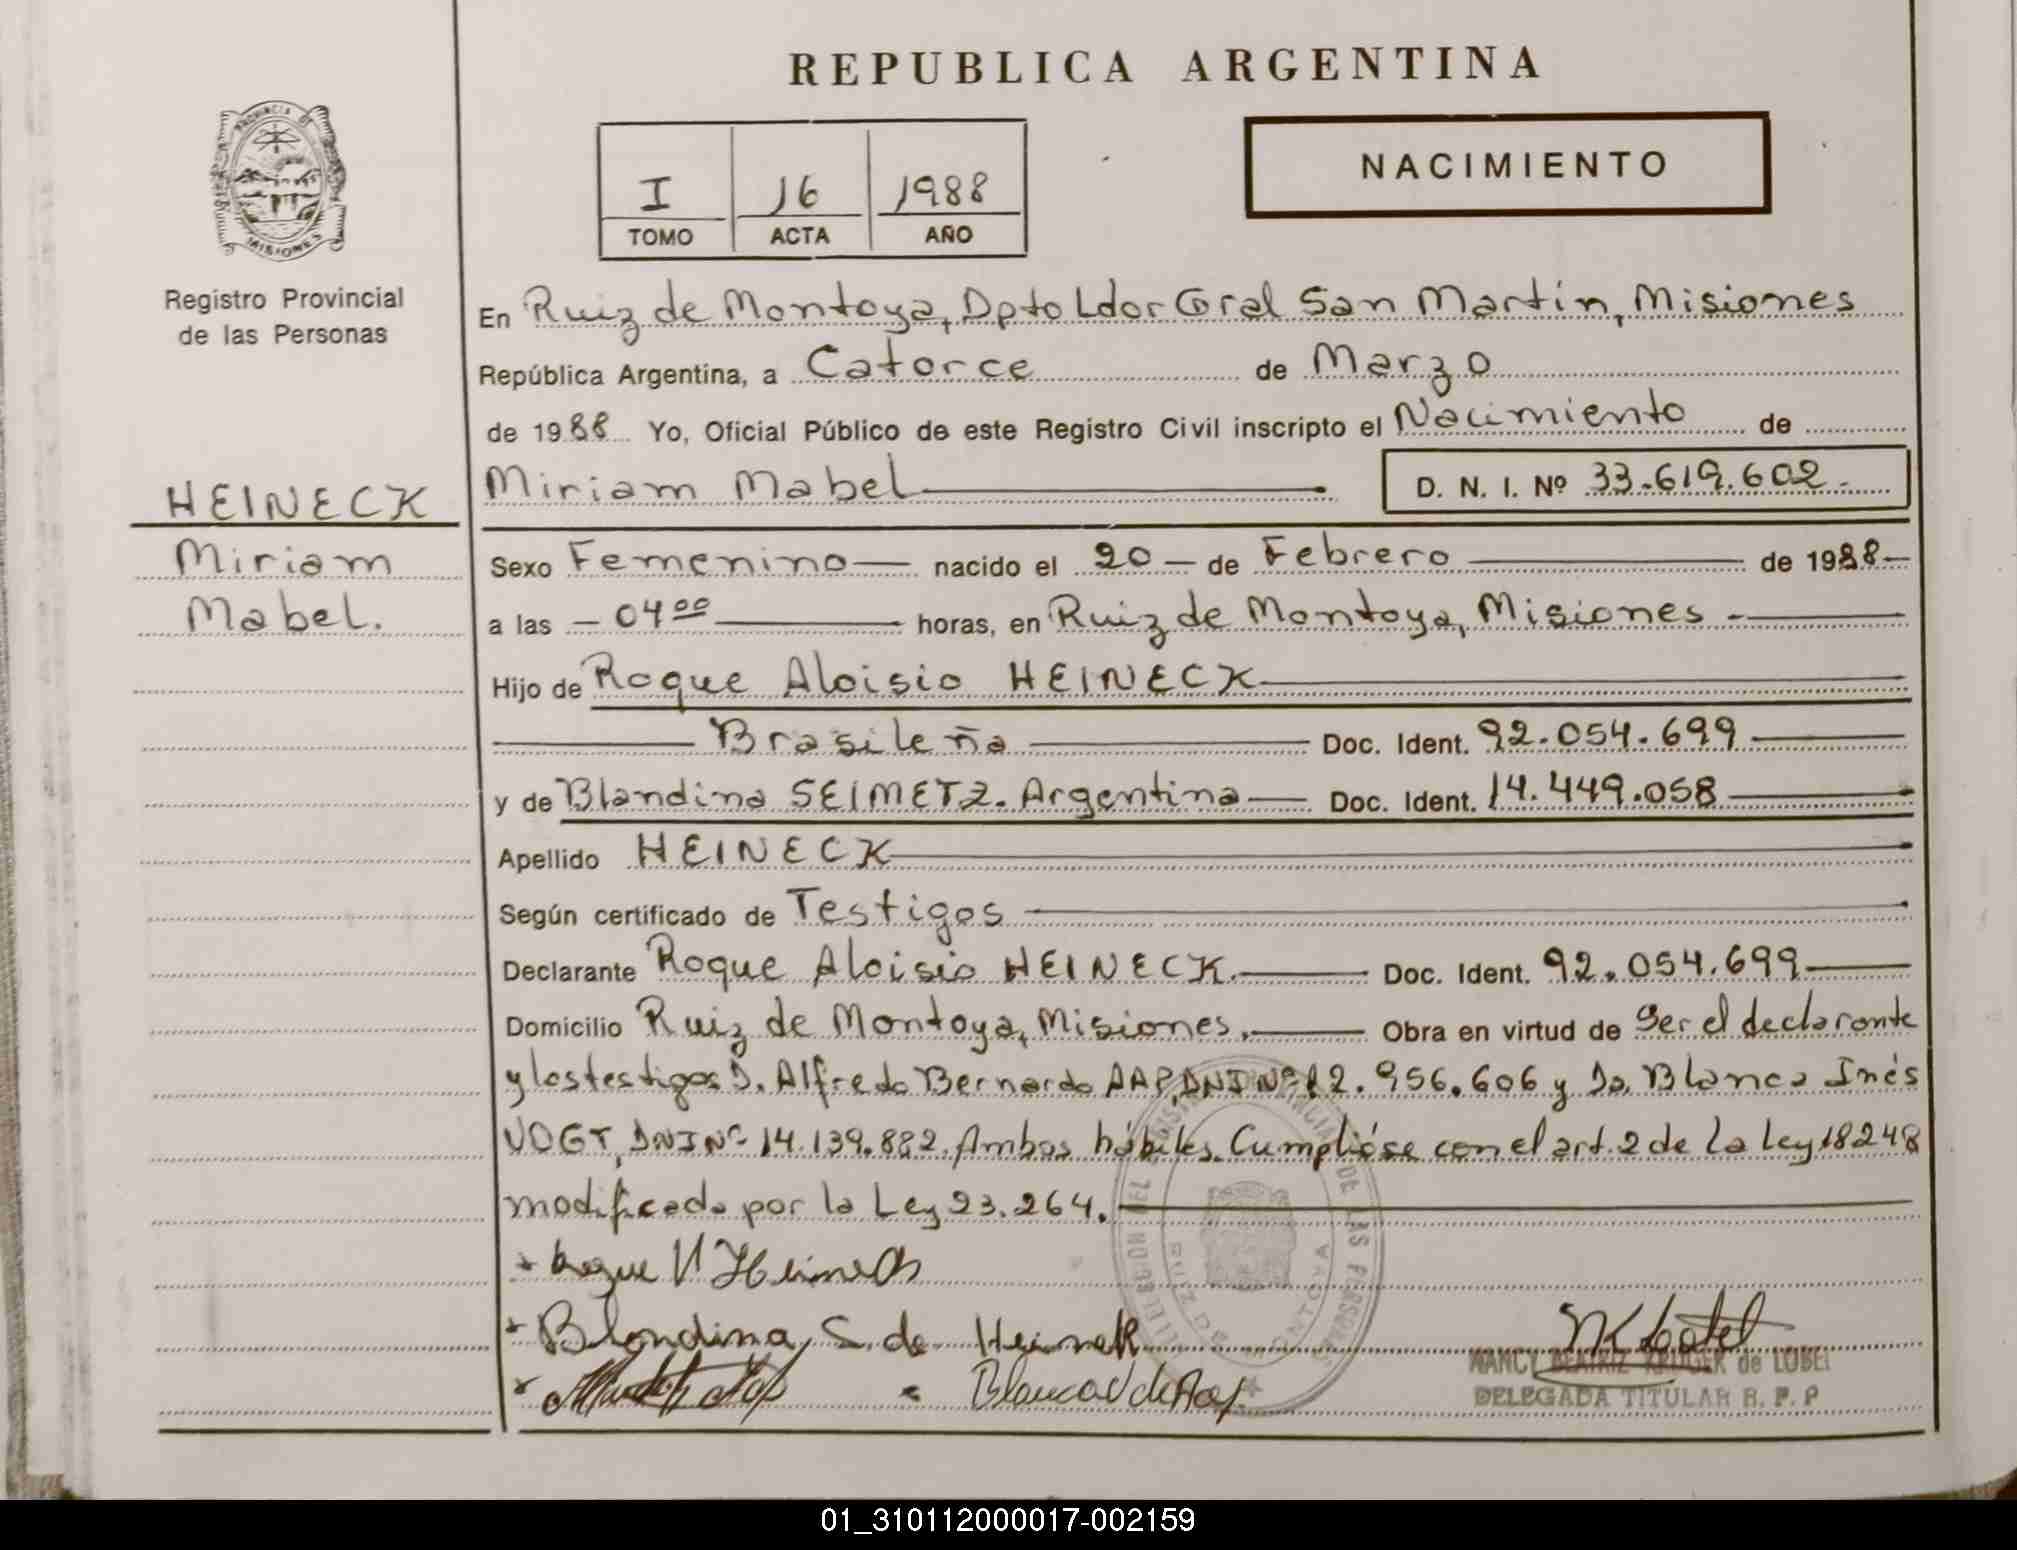 REPUBLICA ARGENTINA
PROVINCIA DE
MISIONES
Registro Provincial
de las Personas
I 16 1988
TOMO ACTA AÑO
NACIMIENTO
En Ruiz de Montoya, Dpto Ldor Gral San Martín, Misiones
República Argentina, a Catorce de Marzo
de 1988 Yo, Oficial Público de este Registro Civil inscripto el Nacimiento de
HEINECK
Miriam
Mabel.
Miriam Mabel D. N. I. Nº 33.619.602.
Sexo Femenino nacido el 20 de Febrero de 1988
a las 04 00 horas, en Ruiz de Montoya, Misiones
Hijo de Roque Aloisio HEINECK
Brasileña Doc. Ident. 92.054.699
y de Blandina SEIMETZ. Argentina Doc. Ident. 14.449.058
Apellido HEINECK
Según certificado de Testigos
Declarante Roque Aloisio HEINECK. Doc. Ident. 92.054.699
Domicilio Ruiz de Montoya, Misiones. Obra en virtud de Ser el declarante
y los testigos D. Alfredo Bernardo AAP, DNI Nº 12.956.606 y Da. Blanca Inés
VOGT, DNI Nº 14.139.882. Ambos hábiles. Cumplióse con el art. 2 de la Ley 18248
modificada por la Ley 23.264.
Blandina S. de Heineck
Blanca V de Aap
NANCY BEATRIZ KRUGER de LOBEL
DELEGADA TITULAR R. P. P
RUIZ DE MONTOYA
01_310112000017-002159